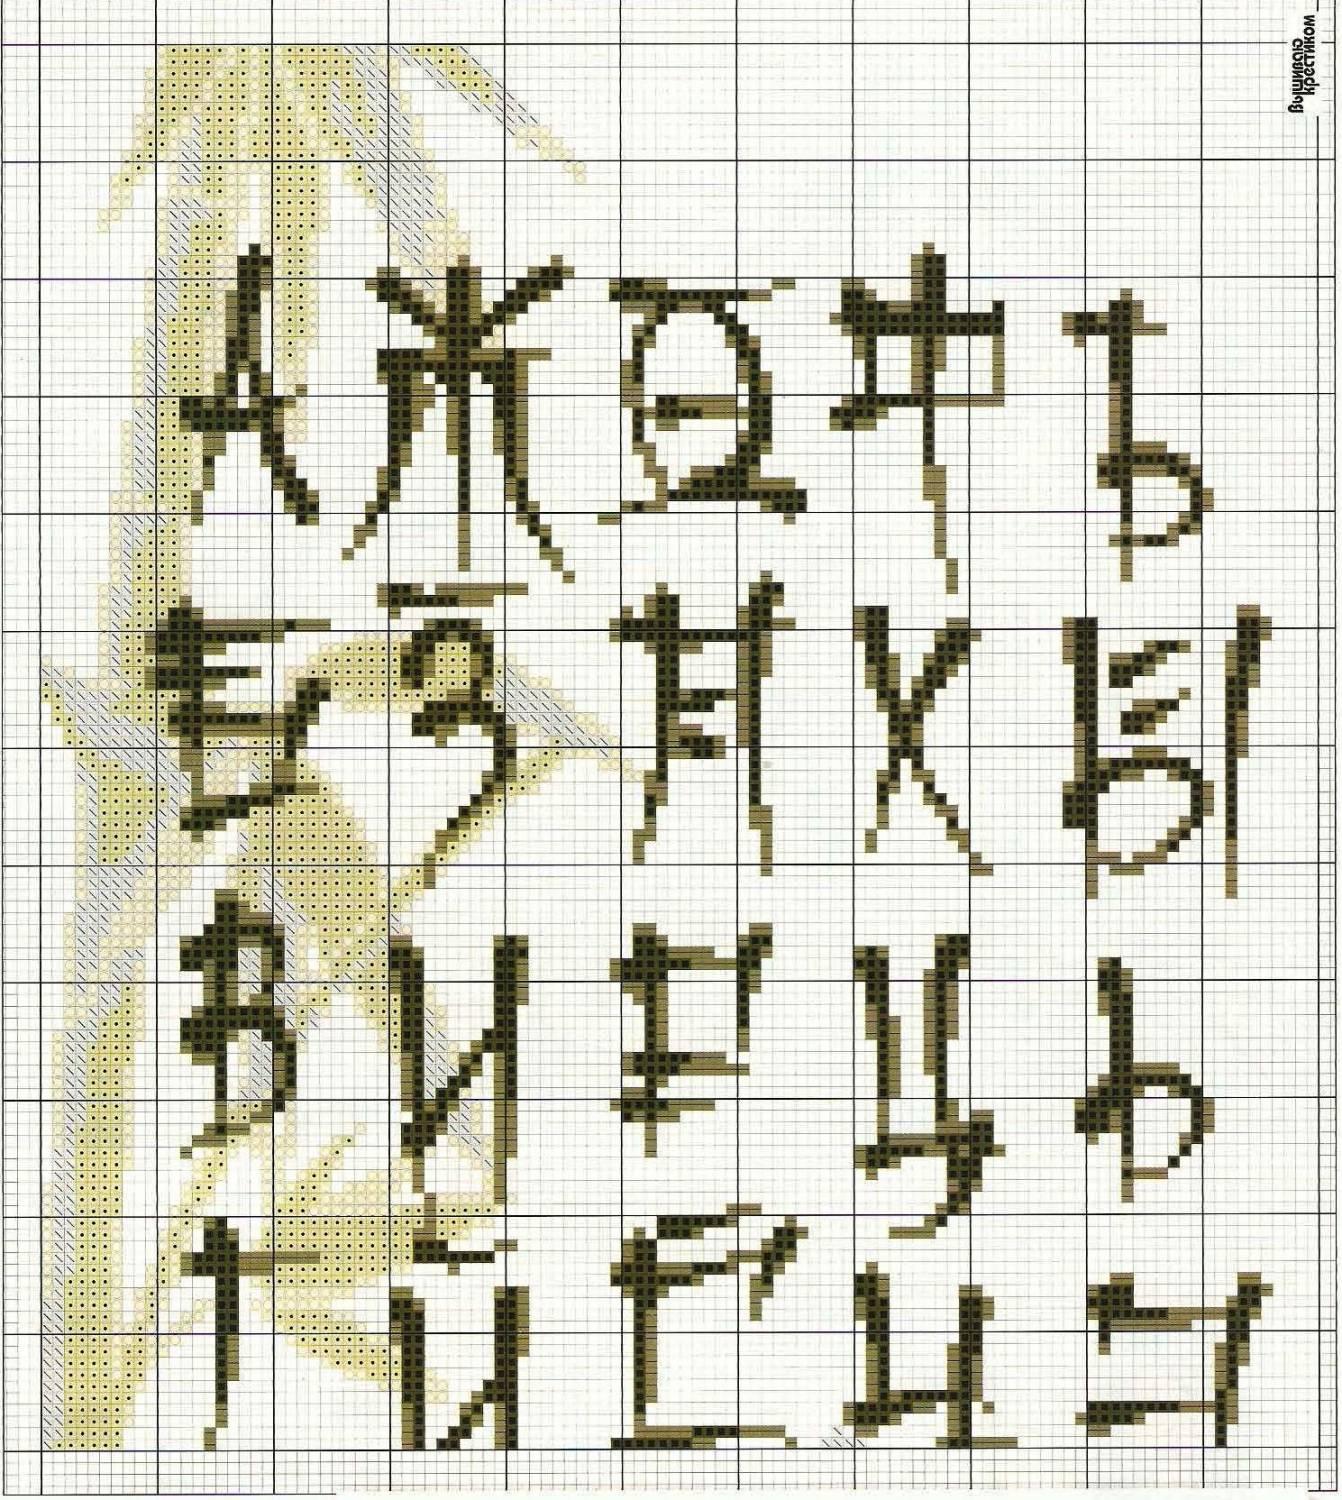 Вышиваю
крестиком
А Ж О Ф Ъ
Б З П Х Ы
В И Р Ц Ь
Г Й С Ч Э